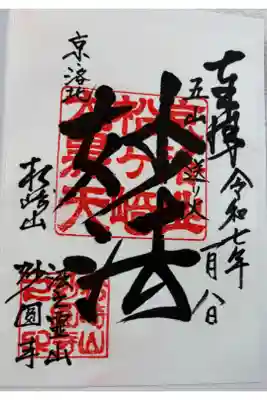 奉拝 令和七年
月八日
五山送り火
妙法
京洛北
松崎山
霊山
妙圓寺
京洛北
松ヶ崎
大黒天